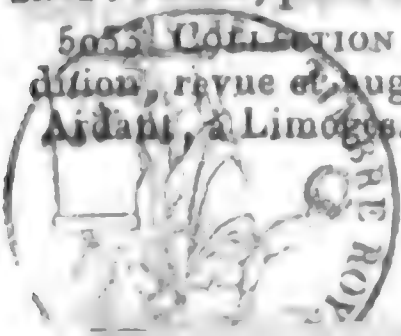 5055. COLLECTION
dition, revue et aug
Ardant, à Limoges.
BRE ROY